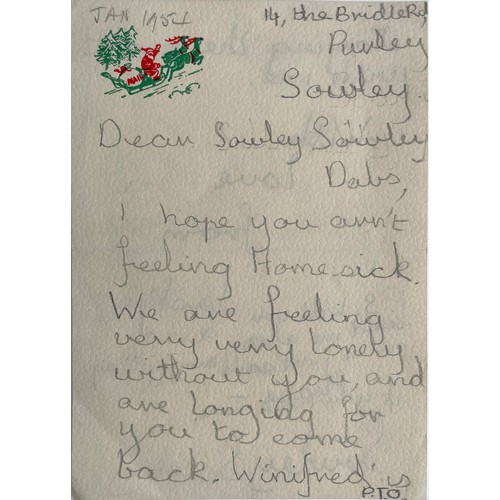 JAN 1954
14, the Bridle Rd
Purley
Sowley.
Dear Sowley Sowley
Dabs,
I hope you arn't
feeling Home-sick.
We are feeling
very very lonely
without you, and
are longing for
you to come
back. Winifred is
P.T.O.